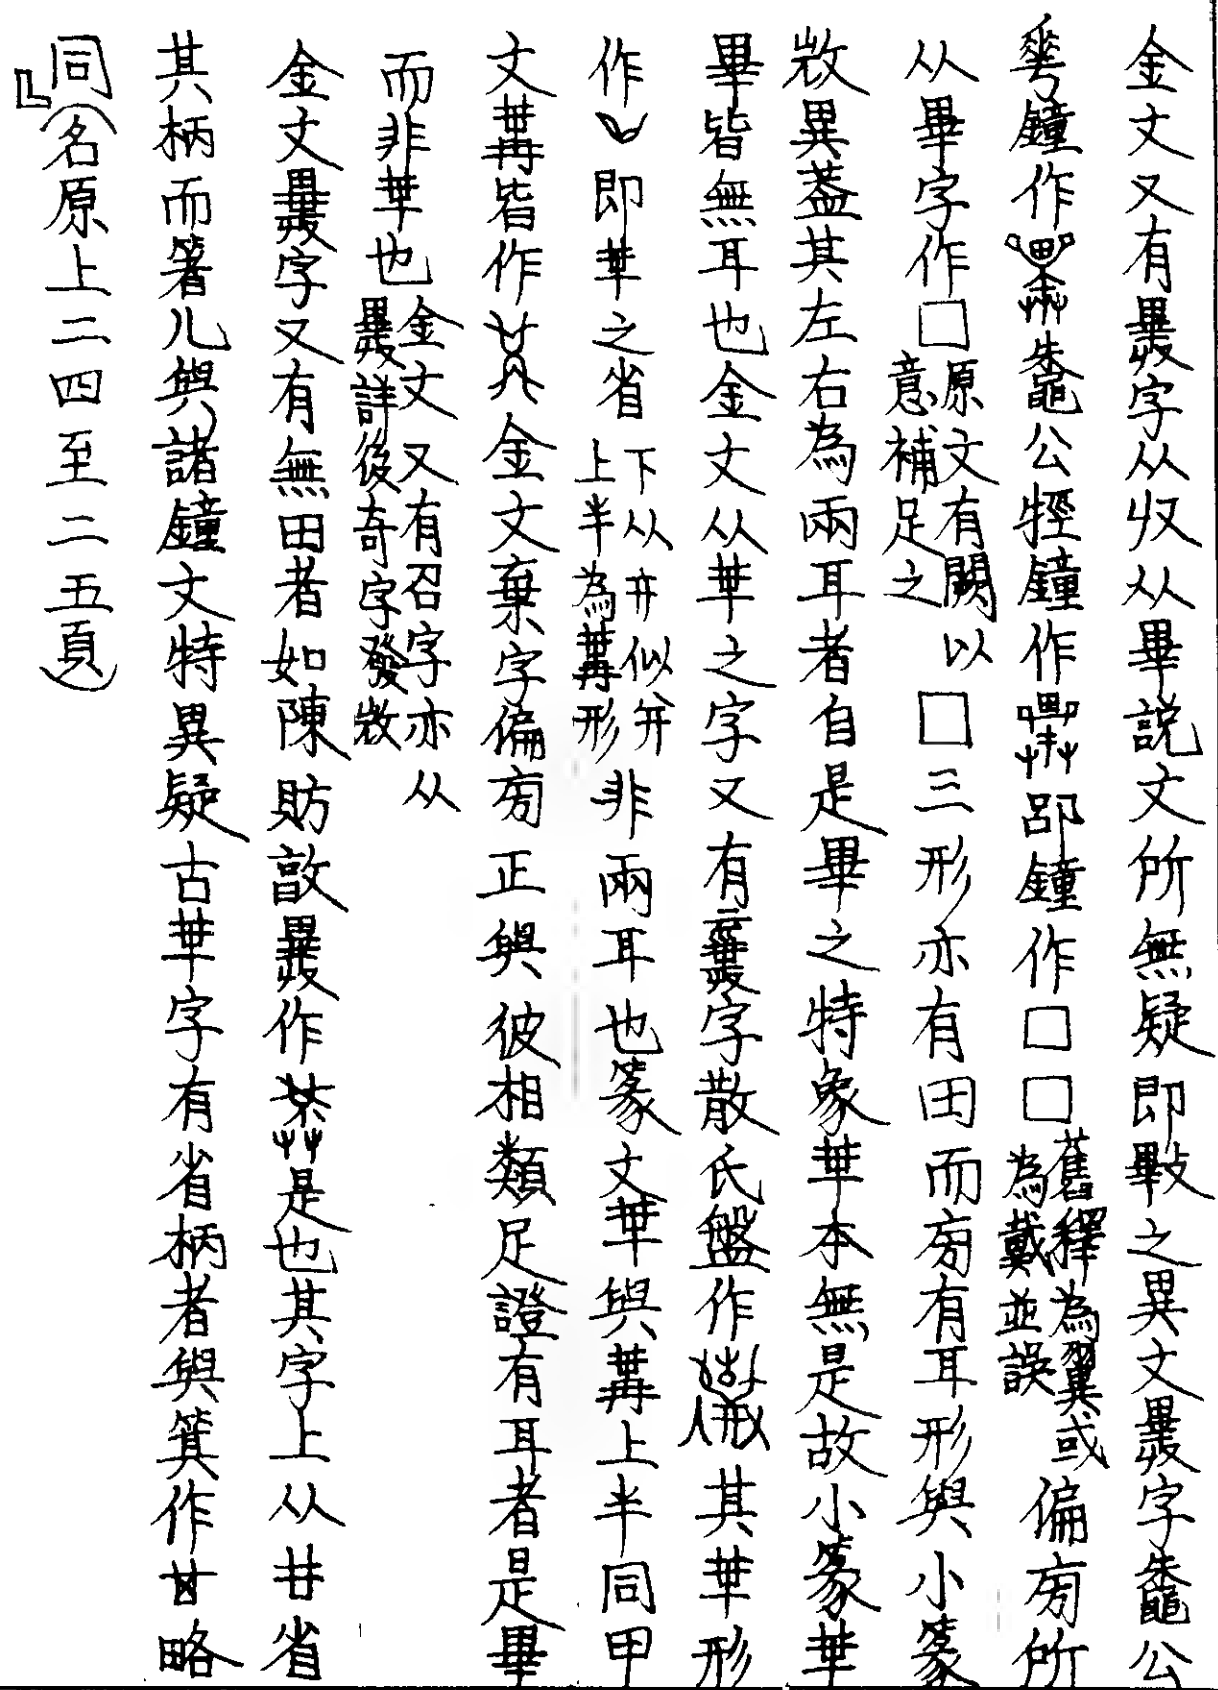 金文又有𢍜字从収从畢說文所無疑即斁之異文𢍜字鼄公
華鐘作鼄公牼鐘作郘鐘作□□舊釋為翼或為戴並誤偏㫄所
从畢字作□原文有闕以意補足之□三形亦有田而㫄有耳形與小篆
㪿異蓋其左右為兩耳者自是畢之特象𠦒本無是故小篆𠦒
畢皆無耳也金文从𠦒之字又有字散氏盤作其𠦒形
作即𠦒之省下从廾似幷上半為冓形非兩耳也篆文𠦒與冓上半同甲
文冓皆作金文棄字偏㫄正與彼相類足證有耳者是畢
而非𠦒也金文又有召字亦从𢍜詳後奇字發㪿
金文𢍜字又有無田者如陳財敦𢍜作是也其字上从甘省
其柄而箸儿與諸鐘文特異疑古𠦒字有省柄者與箕作略
同（名原上二四至二五頁）』